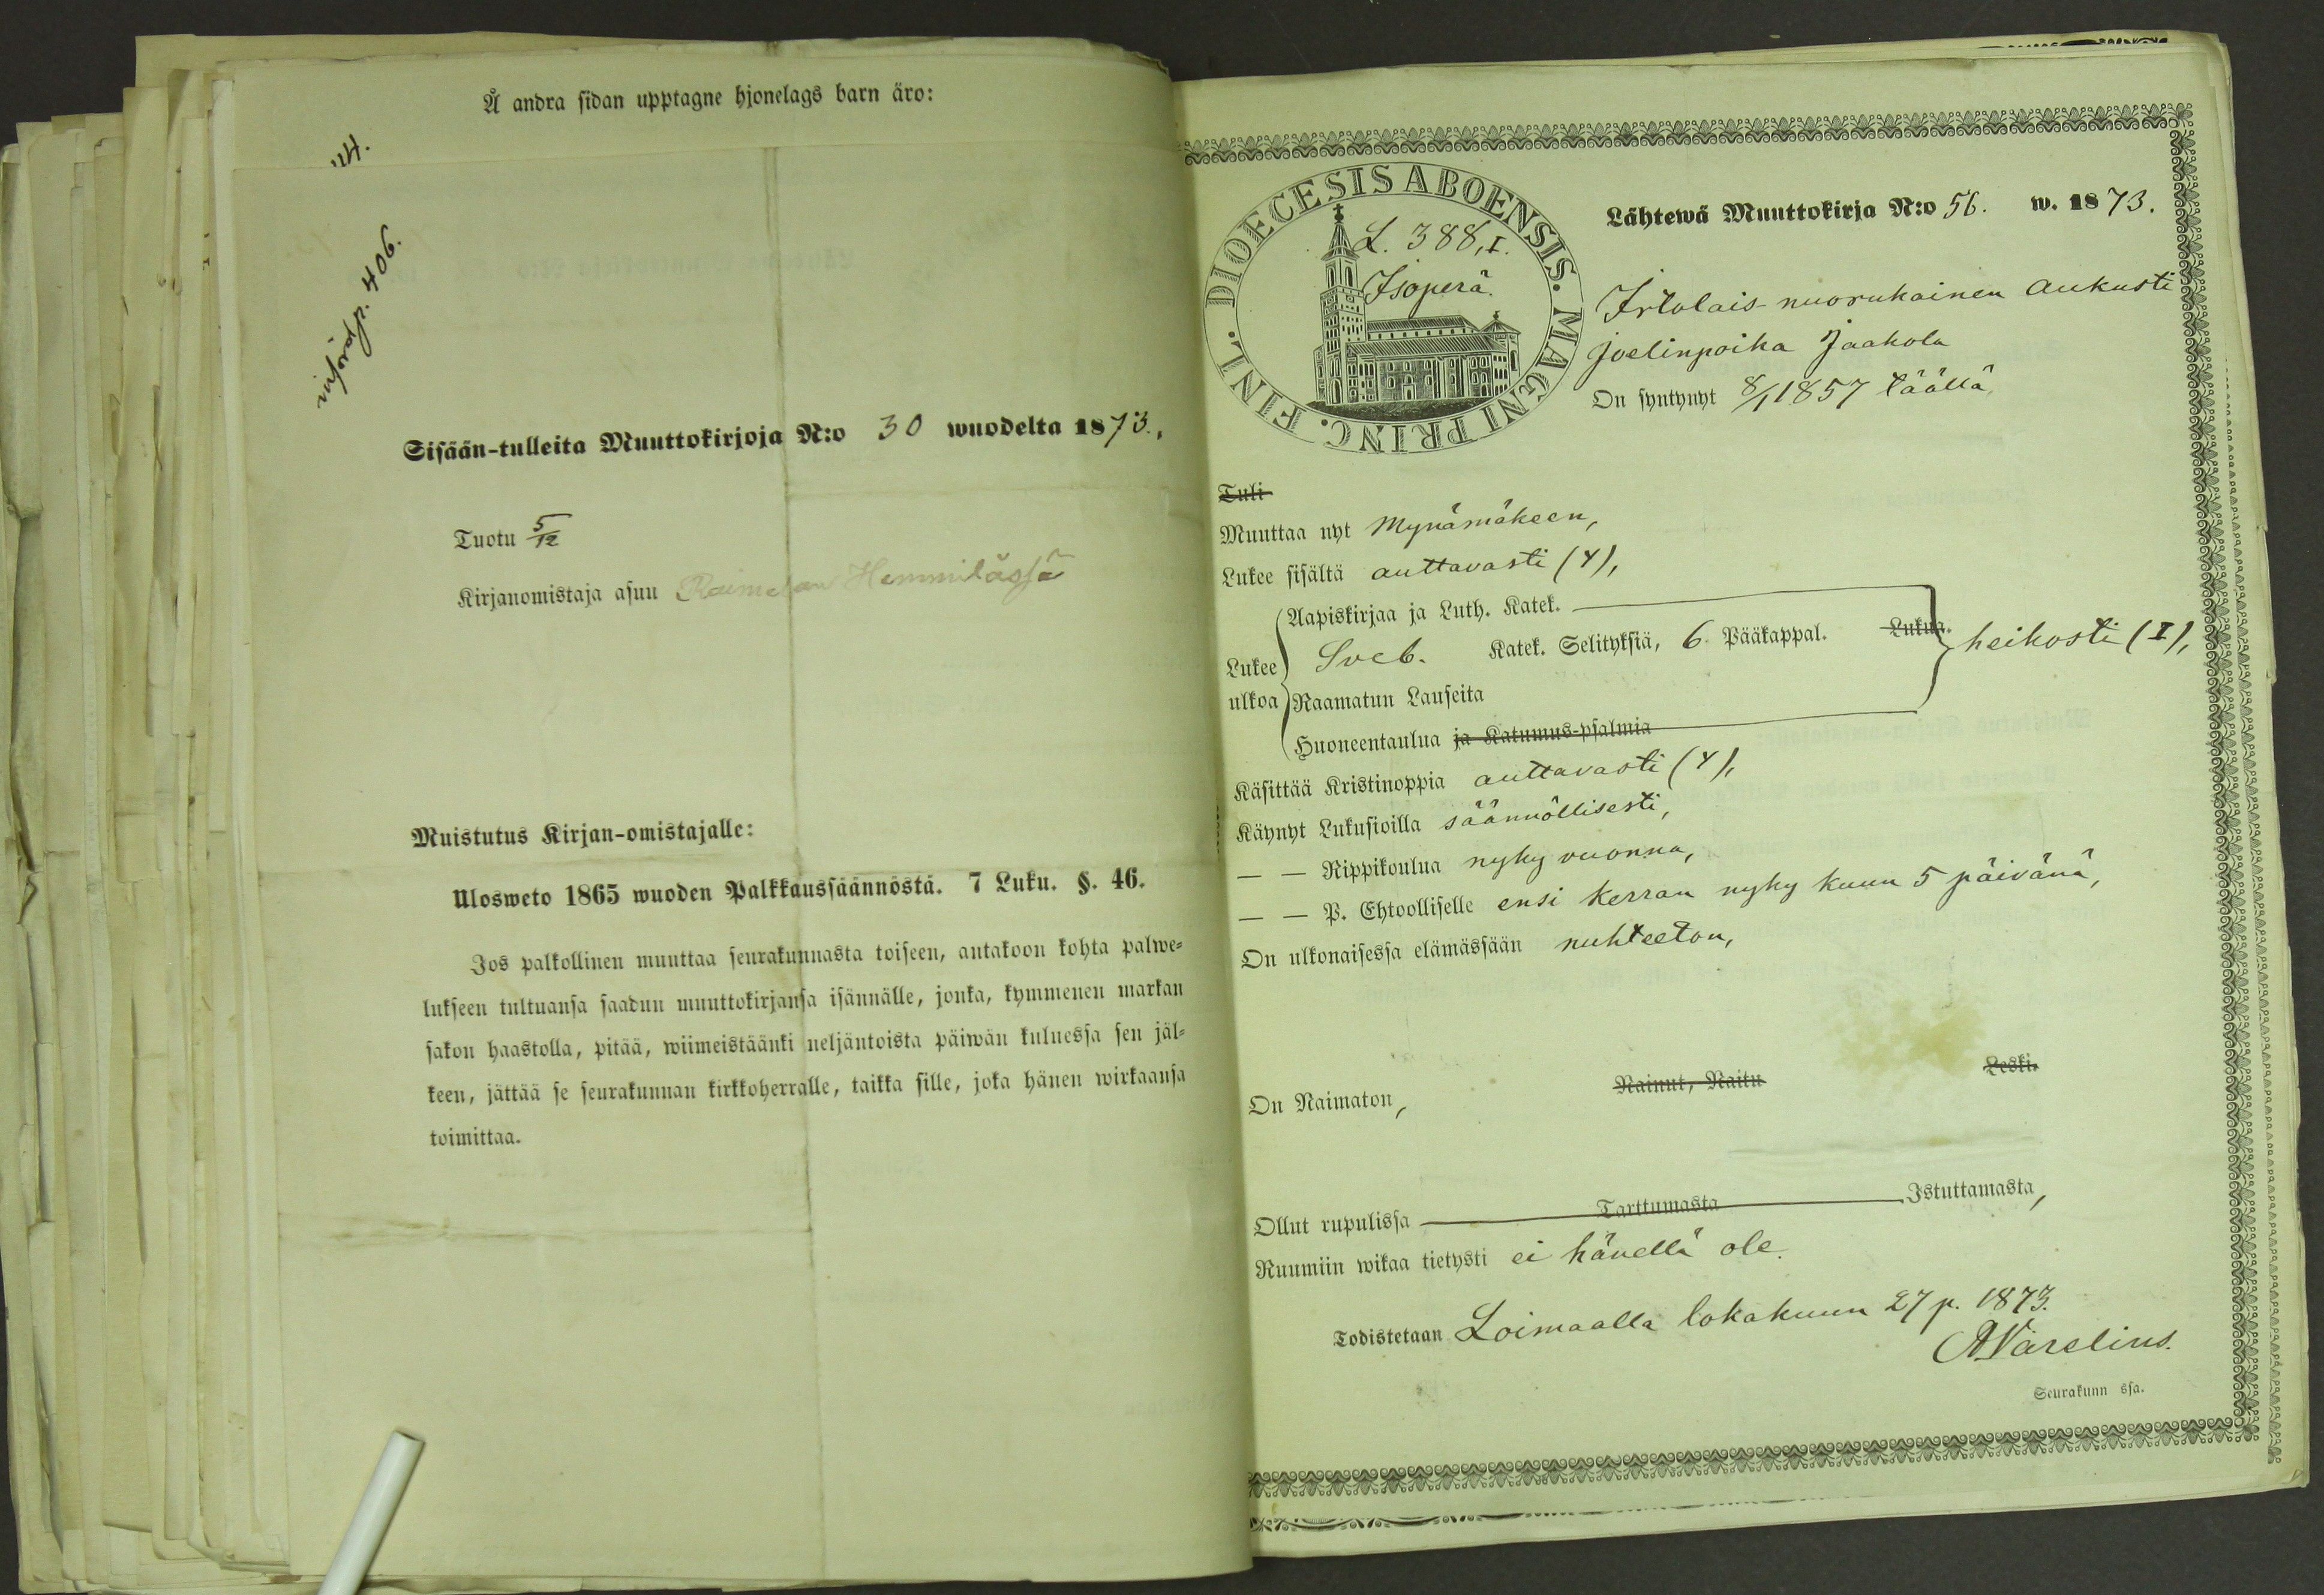 Å andra sidan upptagne hjonelags barn äro:
införd p. 406.
Sisään-tulleita Muuttokirjoja N:o 30 wuodelta 1873.,
Tuotu 5/12
Kirjanomistaja asuu Raimelan Hemmilässä
Muistutus Kirjan-omistajalle:
Ulosweto 1865 wuoden Palkkaussäännöstä. 7 Luku. §. 46.
Jos palkollinen muuttaa seurakunnasta toiseen, antakoon kohta palwe-
lukseen tultuansa saadun muuttokirjansa isännälle, jonka, kymmenen markan
sakon haastolla, pitää, wiimeistäänki neljäntoista päiwän kuluessa sen jäl-
keen, jättää se seurakunnan kirkkoherralle, taikka sille, joka hänen wirkaansa
toimittaa.
DIOECESIS ABOENSIS. MAGNI PRINC. FINL.
L. 388, I.
Isoperä.
Lähtewä Muuttokirja N:o 56. w. 1873.
Irtolais-nuorukainen Aukusti
Joelinpoika Jaakola
On syntynyt 8/1 1857 täällä,
Tuli
Muuttaa nyt Mynämäkeen,
Lukee sisältä auttavasti (Y),
Lukee ulkoa
Aapiskirjaa ja Luth. Katek.
Sveb. Katek. Selityksiä, 6 Pääkappal. Lukua.
heikosti (I),
Raamatun Lauseita
Huoneentaulua ja Katumus-psalmia
Käsittää Kristinoppia auttavasti (Y),
Käynyt Lukusioilla säännöllisesti,
— — Rippikoulua nyky vuonna,
— — P. Ehtoolliselle ensi kerran nyky kuun 5 päivänä,
On ulkonaisessa elämässään nuhteeton,
On Naimaton, Nainut, Naitu Leski.
Ollut rupulissa Tarttumasta Istuttamasta,
Ruumiin wikaa tietysti ei hänellä ole.
Todistetaan Loimaalla lokakuun 27 p. 1873.
A Varelius.
Seurakunn ssa.